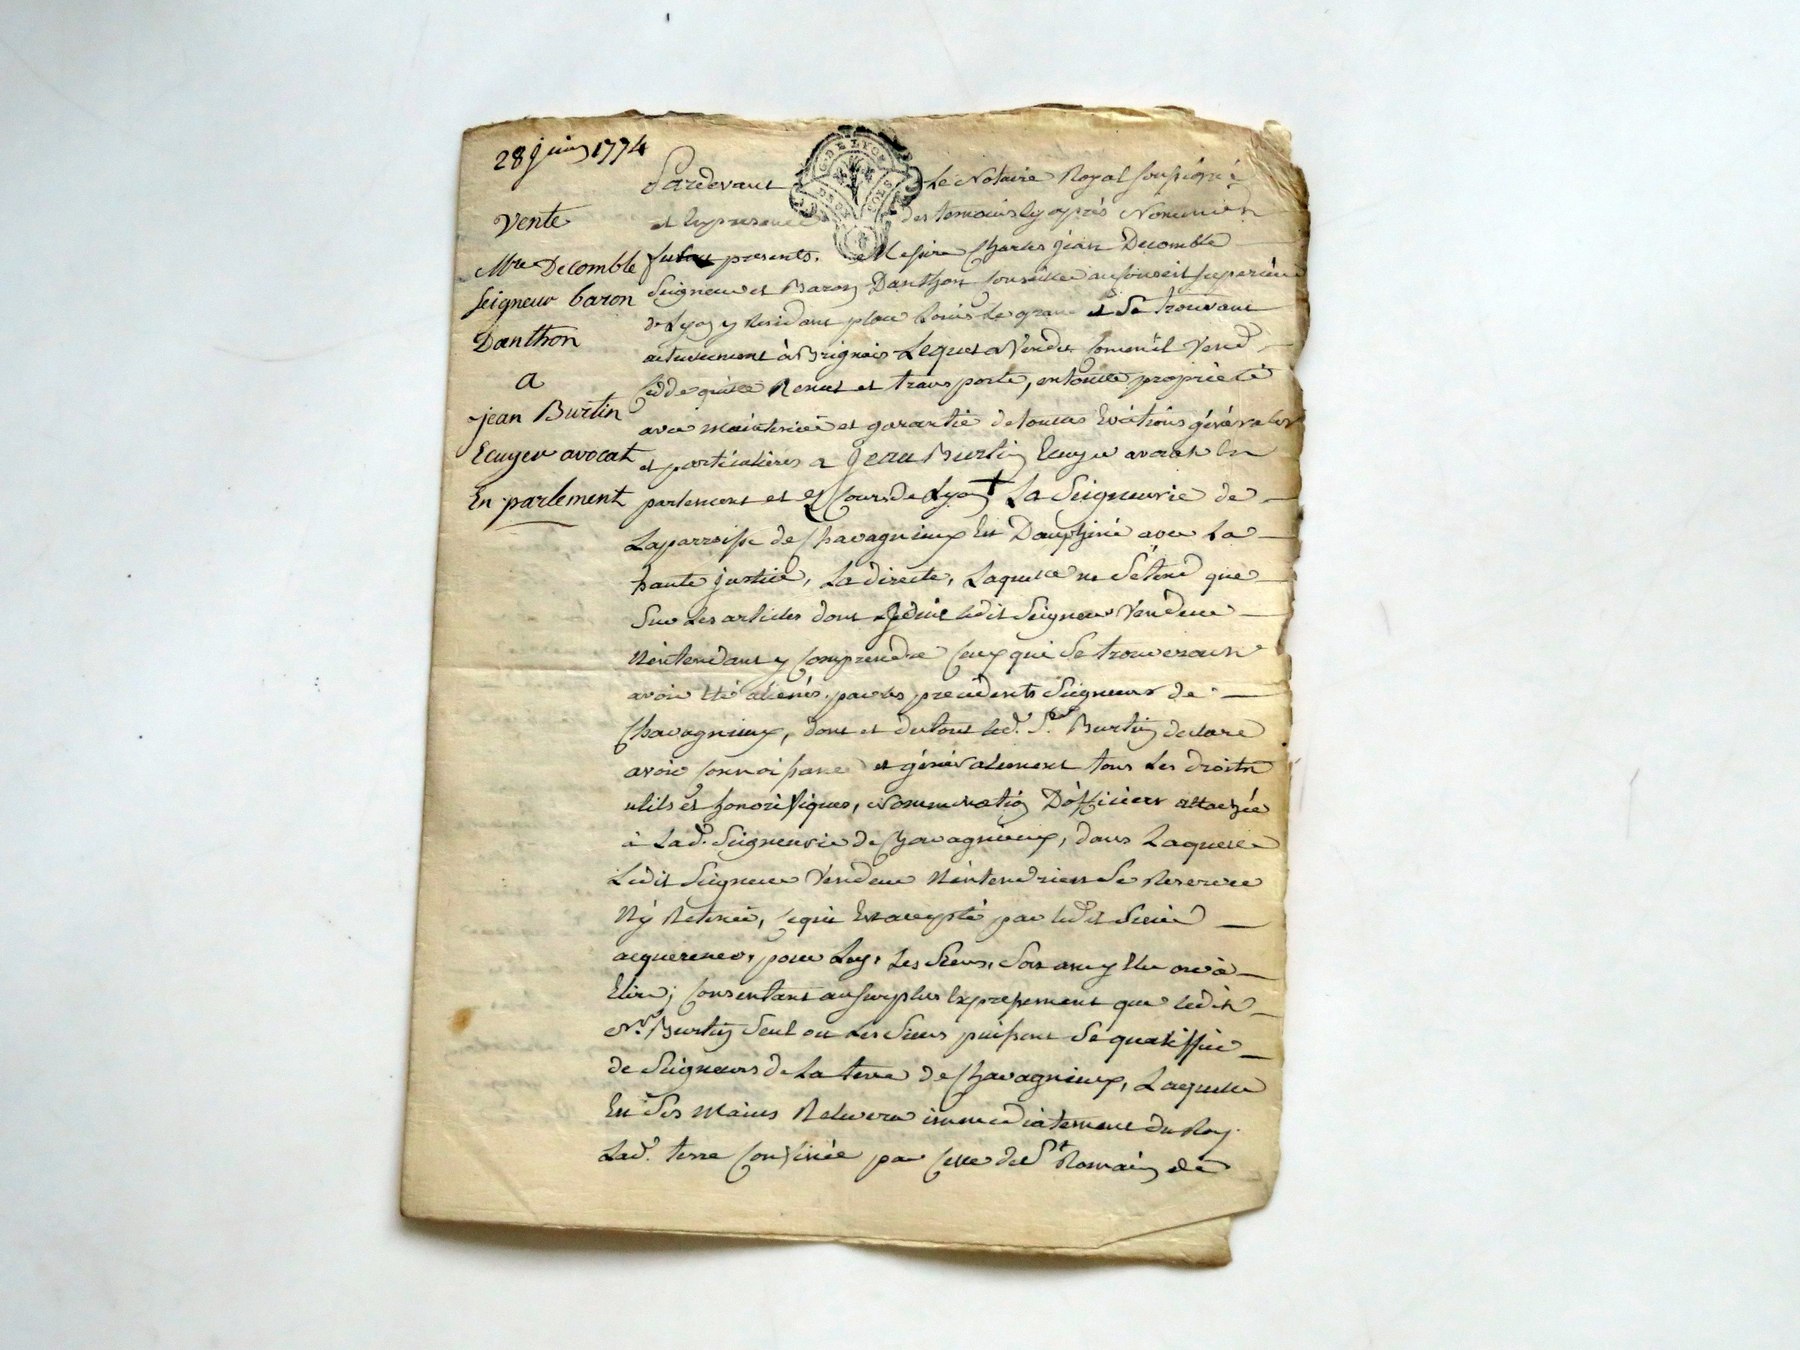 28 juin 1774
Vente
Mre Decomble
Seigneur baron
Danthon
a
jean Burtin
Ecuyer avocat
En parlement
G. DE LYON
Pardevant Le Notaire Royal soussigné
et En presence des temoins cy après Nommés
furent presents. Messire Charles jean Decomble
Seigneur et Baron Danthon Conseiller au Conseil superieur
de Lyon y Residant place Louis Le grand et Se trouvant
actuellement à Brignais Lequel a Vendu comme il Vend
Cedde quitte Remet et transporte, en toutte proprieté
avec maintenüe et garantie de toutes Evictions générales
et particulieres a Jean Burtin Ecuyer avocat En
parlement et és Cours de Lyon + La Seigneurie de
La parroisse de Chavagnieux En Dauphiné avec La
haute justice, La directe, Laquelle ne S'étend que
Sur Les articles dont Jouit ledit Seigneur Vendeur
N'entendant y Comprendre Ceux qui Se trouveront
avoir été aliénés par les précédents Seigneurs de
Chavagnieux, dont et du tout led. Sr. Burtin declare
avoir connoissance et généralement tous Les droits
utils et honorifiques, Nomination D'officiers attachée
à Lad. Seigneurie de Chavagnieux, dans Laquelle
Ledit Seigneur Vendeur N'entend rien Se Reserver
Ny Retenir, Ce qui Est accepté par ledit Sieur
acquereur, pour Luy, Les Siens, Son amy Elu ou à
Elire; Consentant au surplus Expressement que ledit
Sr. Burtin Seul ou Les Siens puissent Se qualiffier
de Seigneurs de La terre de Chavagnieux, Laquelle
En Ses mains Relevera immediatement du Roy.
Lad. terre Confinée par Celle de St Romain de